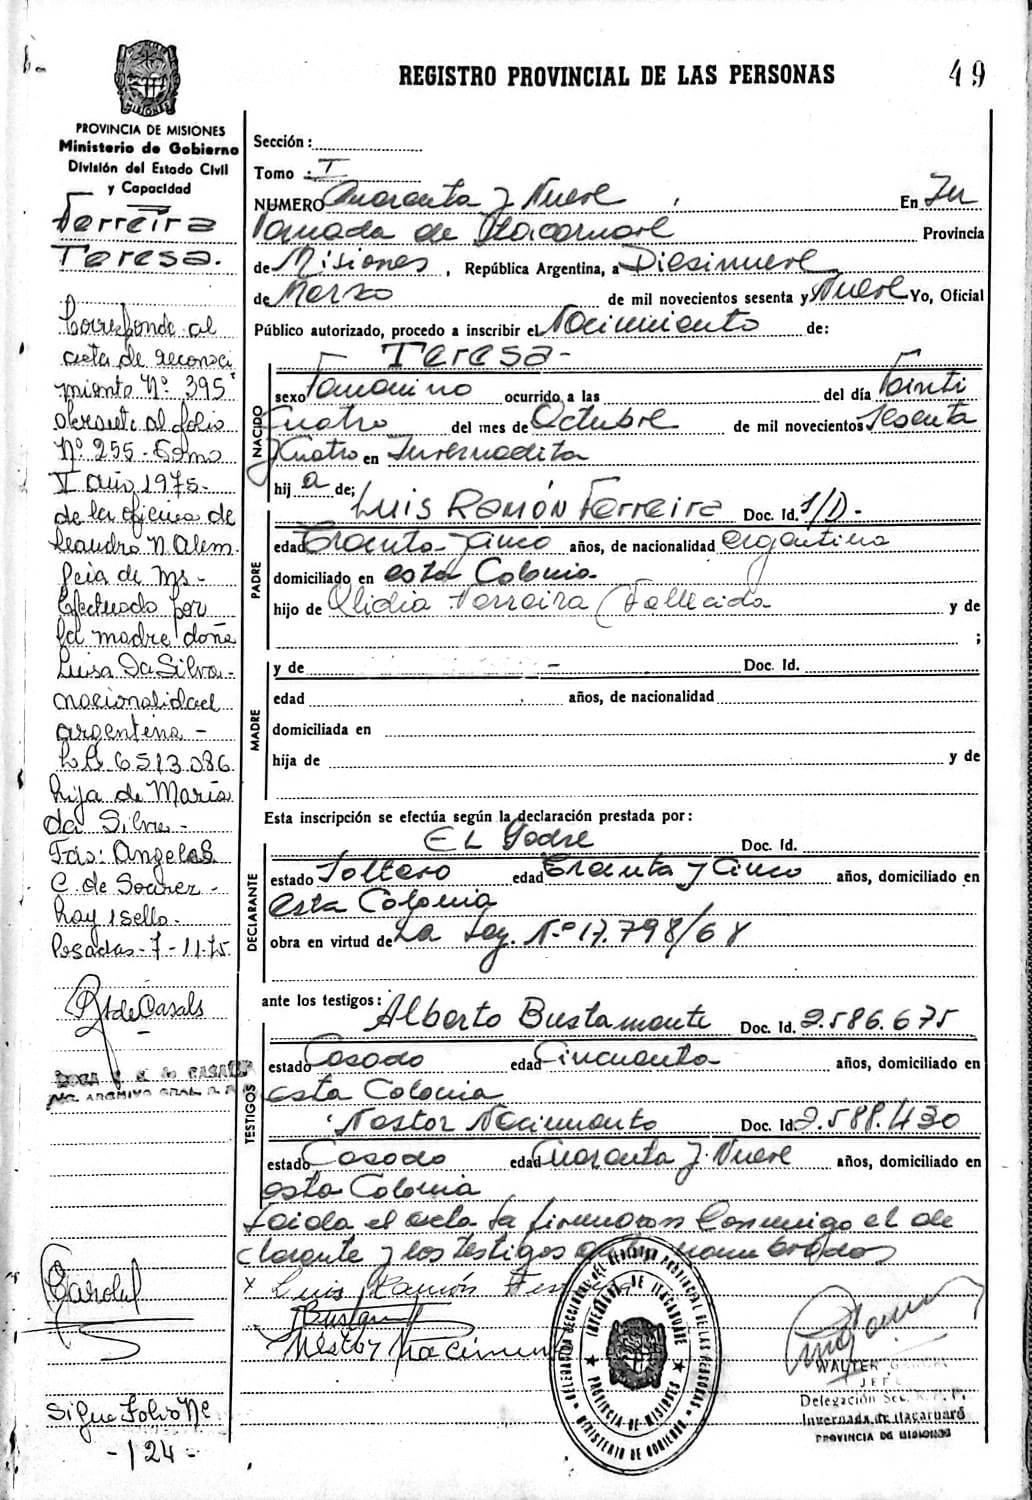 REGISTRO PROVINCIAL DE LAS PERSONAS
49
MISIONES
PROVINCIA DE MISIONES
Ministerio de Gobierno
División del Estado Civil
y Capacidad
Ferreira
Teresa.
Corresponde al
acta de reconoci
miento Nº 395
obrante al folio
Nº 255 - Tomo
I año 1975-
de la oficina de
Leandro N. Alem
Pcia de Ms -
Efectuado por
la madre doña
Luisa Da Silva -
nacionalidad
argentina -
6513086
hija de María
da Silva -
Fdo: Angela S.
C. de Soarez -
hay 1 sello.
Posadas - 7 - 11-75
Rt de Casals
Sigue Folio Nº
- 124 -
Sección :
Tomo : I
NUMERO Cuarenta y Nueve En In
vernada de Itacaruaré Provincia
de Misiones, República Argentina, a Diesinueve
de Marzo de mil novecientos sesenta y Nueve Yo, Oficial
Público autorizado, procedo a inscribir el Nacimiento de:
Teresa -
NACIDO
sexo Famanino ocurrido a las del día Vainti
Cuatro del mes de Octubre de mil novecientos Sesenta
y Cuatro en Invernadita
hij a de;
PADRE
Luis Ramón Ferreira Doc. Id. S/D -
edad Trainta y Cinco años, de nacionalidad argentina
domiciliado en esta Colonia
hijo de Olidia Ferreira (Fallecida y de
;
MADRE
y de Doc. Id.
edad años, de nacionalidad
domiciliada en
hija de y de
Esta inscripción se efectúa según la declaración prestada por:
DECLARANTE
EL Padre Doc. Id.
estado Soltero edad Trainta y Cinco años, domiciliado en
esta Colonia
obra en virtud de La Ley. Nº 17.798/68
ante los testigos:
TESTIGOS
Alberto Bustamante Doc. Id. 2.586.675
estado Casado edad Cincuanta años, domiciliado en
esta Colonia
Nestor Nacimiento Doc. Id. 2.588.430
estado Casado edad Cuaranta y Nueve años, domiciliado en
esta Colonia
Laida el acta la firmaron Conmigo el de
clarante y los testigos nombrados
x Luis Ramón Ferreira
Nestor Nacimiento
DELEGACION SECCIONAL DEL REGISTRO PROVINCIAL DE LAS PERSONAS
INVERNADA DE ITACARUARE
PROVINCIA DE MISIONES
MINISTERIO DE GOBIERNO
WALTER
JEFE
Delegación Sec. R. P. P.
Invernada de Itacaruaré
PROVINCIA DE MISIONES